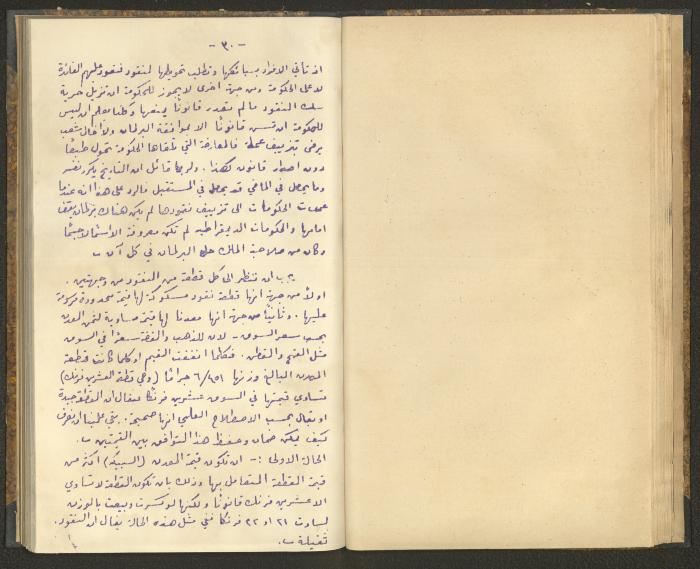 - ٣٠ -
اذ تأتي الافراد بسبائكها وتطلب تحويلها لنقود فتعود عليهم الفائدة
لا على الحكومة ومن جهة اخرى لا يجوز للحكومة ان تزيل حرية
سك النقود ما لم تصدر قانونًا يمنعها وكلنا يعلم ان ليس
للحكومة ان تسن قانونًا الا بموافقة البرلمان ولا اخال شعب
يرضى تزييف عملة فالمعارضة التي تلقاها الحكومة تحول طبعًا
دون اصدار قانون كهذا. ولربما قائل ان التاريخ يكرر نفسه
وما يحصل في الماضي قد يحصل في المستقبل فالرد على هذا انه عندما
عمدت الحكومات الى تزييف نقودها لم يكن هناك برلمان يقف
امامها والحكومات الديمقراطية لم تكن معروفة الا
وكان من صلاحية الملك حل البرلمان في كل آن
يجب ان ننظر الى كل قطعة من النقود من وجهتين.
اولًا من جهة انها قطعة نقود مسكوكة لها قيمة محدودة مرسومة
عليها. وثانيًا من جهة انها معدنًا لها قيمة مساوية لثمن المعدن
بحسب سعر السوق - لان للذهب والفضة سعرًا في السوق
مثل القمح والقطن. فكلما اتفقت القيم او كلما كانت قطعة
المعدن البالغ وزنها ٦/٤٥١ جرامًا (وهي قطعة العشرين فرنك)
تساوي قيمتها في السوق عشرين فرنكًا فيقال ان القطعة جيدة
او يقال بحسب الاصطلاح العلمي انها صحيحة. بقي علينا ان نعرف
كيف يمكن ضمان وحفظ هذا التوافق بين القيمتين
الحالة الاولى :- ان تكون قيمة المعدن (السبيكة) اكثر من
قيمة القطعة المتعامل بها وذلك بان تكون القطعة لا تساوي
الا عشرين فرنك قانونًا ولكنها لو كسرت وبيعت بالوزن
لساوت ٢١ او ٢٢ فرنكًا ففي مثل هذه الحالة يقال ان النقود
ثقيلة